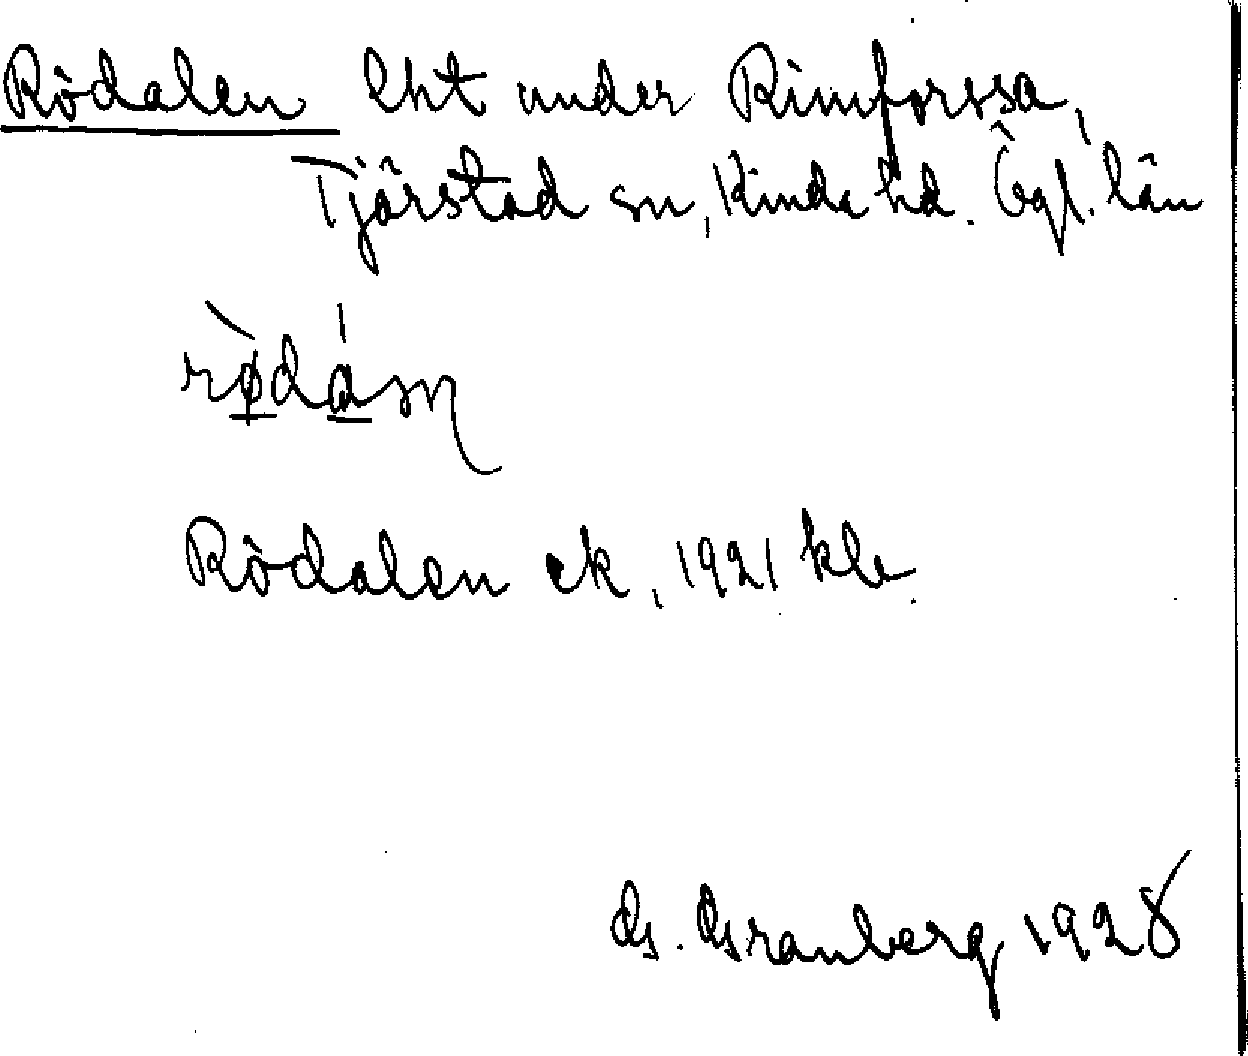 Rödalen lht under Rimforssa,
Tjärstad sn, Kinda hd. Ögl. län
rø̀dán
Rödalen ek, 1921 kle.
G. Granberg 1928